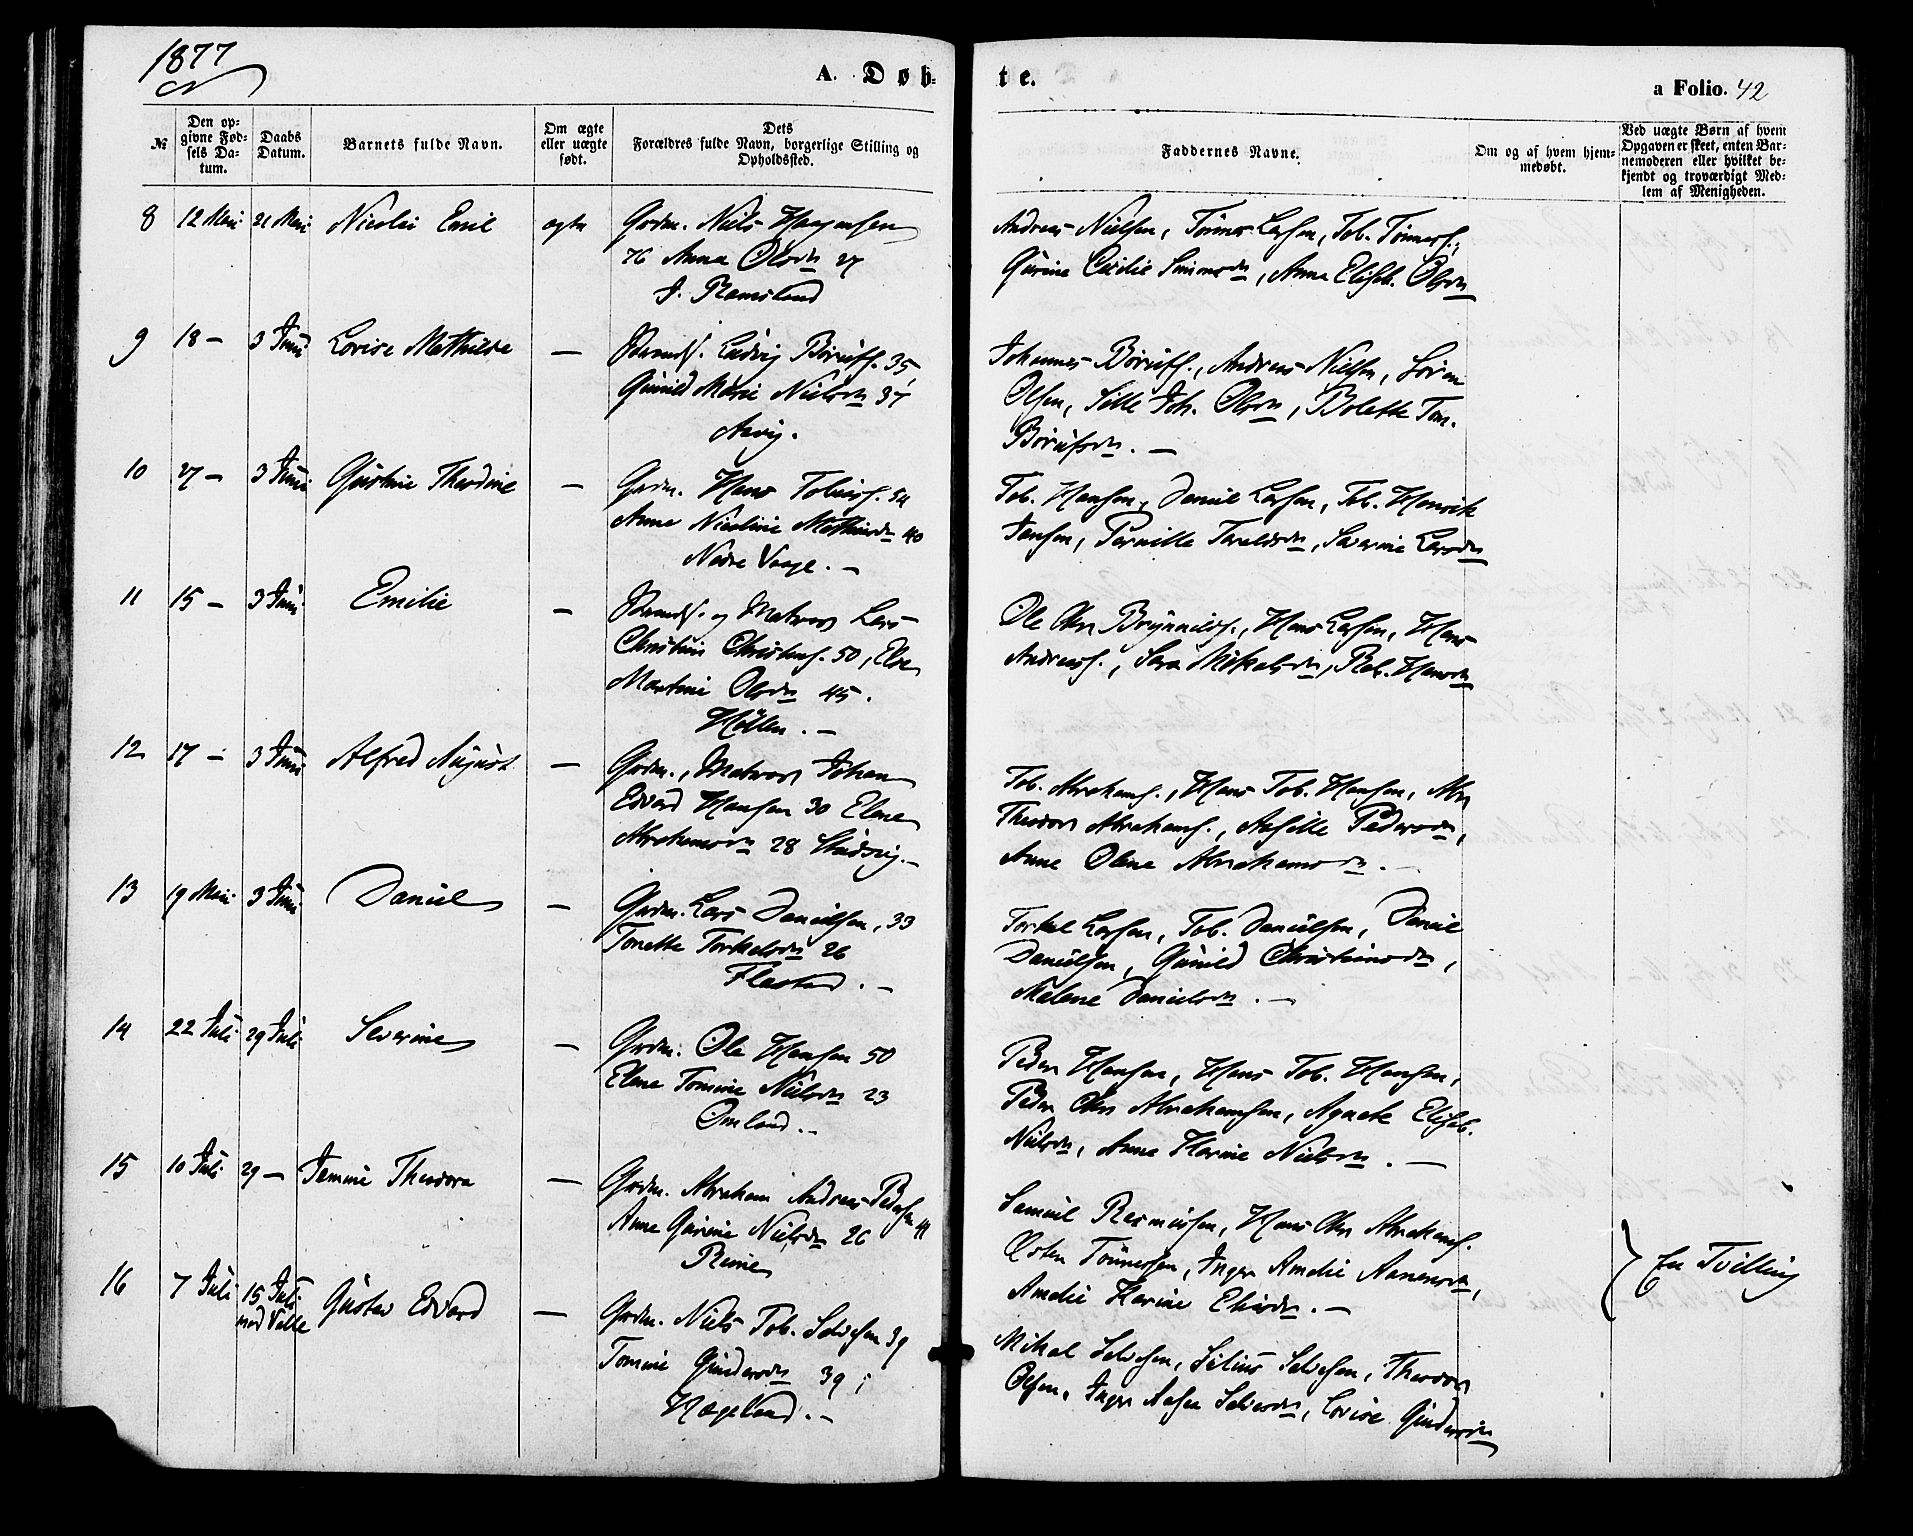 1877
A. Døb-
te.
a Folio. 42
№
Den op-
givne Fød-
sels Da-
tum.
Daabs
Datum.
Barnets fulde Navn.
Om ægte
eller uægte
født.
Dets
Forældres fulde Navn, borgerlige Stilling og
Opholdssted.
Faddernes Navne.
Om og af hvem hjem-
medøbt.
Ved uægte Børn af hvem
Opgaven er skeet, enten Bar-
nemoderen eller hvilket be-
kjendt og troværdigt Med-
lem af Menigheden.
8 12 Mai 21 Mai Nicolai Emil ægte Grdm. Niels Haagensen
76 Anna Olsdn 27
Ramsland
Andreas Nielsen, Tønnes Larsen, Tob. Tønness.,
Gurine Cecilie Simonsdn, Anna Elisab. Olsdn
9 18 – 3 Juni Lovise Mathilde — Ludvig Børufs. 35,
Gunild Marie Nielsdn 37
Aavig.
Johannes Børufs., Andreas Nielsen, Søren
Olsen, Sille Joh. Olsdn, Bolette Tom.
Børufsdn. —
10 27 – 3 Juni Gustine Theodine — Grdm. Hans Tobias. 54
Anne Nicoline Mathiasdn 40
Nedre Vaage. —
Tob. Hansen, Daniel Larsen, Tob. Henrik
Jensen, Pernille Tereldsdn, Severine Larsdn
11 15 – 3 Juni Emilie — og Matros Lars
Christian Christens. 50, Else
Martine Olsdn 45.
Höllen. —
Ole Chr Brynnilds., Hans Larsen, Hans
Andreas., Sara Mikalsdn, Reb. Hansdn
12 17 – 3 Juni Alfred August — Grdm., Matros Johan
Edvard Hansen 30 Elene
Abrahamsdn 28 Stusvig. –
Tob. Abrahams., Hans Tob. Hansen, Abr
Theodor Abrahams., Aasille Pedersdn,
Anne Olene Abrahamsdn. —
13 19 Mai 3 Juni Daniel — Grdm. Lars Danielsen, 33
Tonette Torkelsdn 26
Flestad. —
Torkel Larsen, Tob. Danielsen, Daniel
Danielsen, Gunild Christiansdn,
Malene Danielsdn. —
14 22 Juli 29 Juli Severine — Grdm. Ole Hansen 50
Elene Tomine Nielsdn 23
Omland. —
Peder Hansen, Hans Tob. Hansen,
Peder Chr Abrahamsen, Agnete Elisab.
Nielsdn, Anna Karine Nielsdn. —
15 10 Juli 29 — Jemine Theodora — Grdm. Abraham Andreas Pedersen 41
Anne Gurine Nielsdn 26
Reme
Samuel Rasmussen, Hans Chr Abrahams.
Østen Tönnessen, Inger Amalie Aanensdn,
Amalie Karine Eliasdn. —
16 7 Juli 15 Juli Gustav Edvard — Grdm. Niels Tob. Salvesen 39
ved Valle
Tomine Gundersdn 39 i
Hægeland. —
Mikal Salvesen, Salvesen, Theodor
Olsen, Inger Aasen Salvesdn, Lovise Gundersdn
En Tvilling